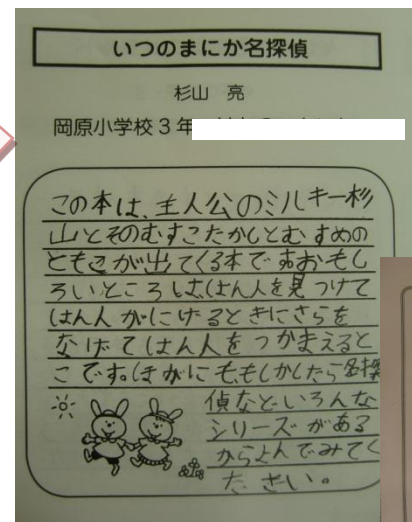 いつのまにか名探偵
杉山 亮
岡原小学校3年
この本は、主人公のミルキー杉
山とそのむすこたかしとむすめの
ともこが出てくる本です。おもし
ろいところは、はん人を見つけて
はん人がにげるときにさらを
なげてはん人をつかまえると
こです。ほかにももしかしたら名探
偵などいろんな
シリーズがある
からよんでみてく
ださい。